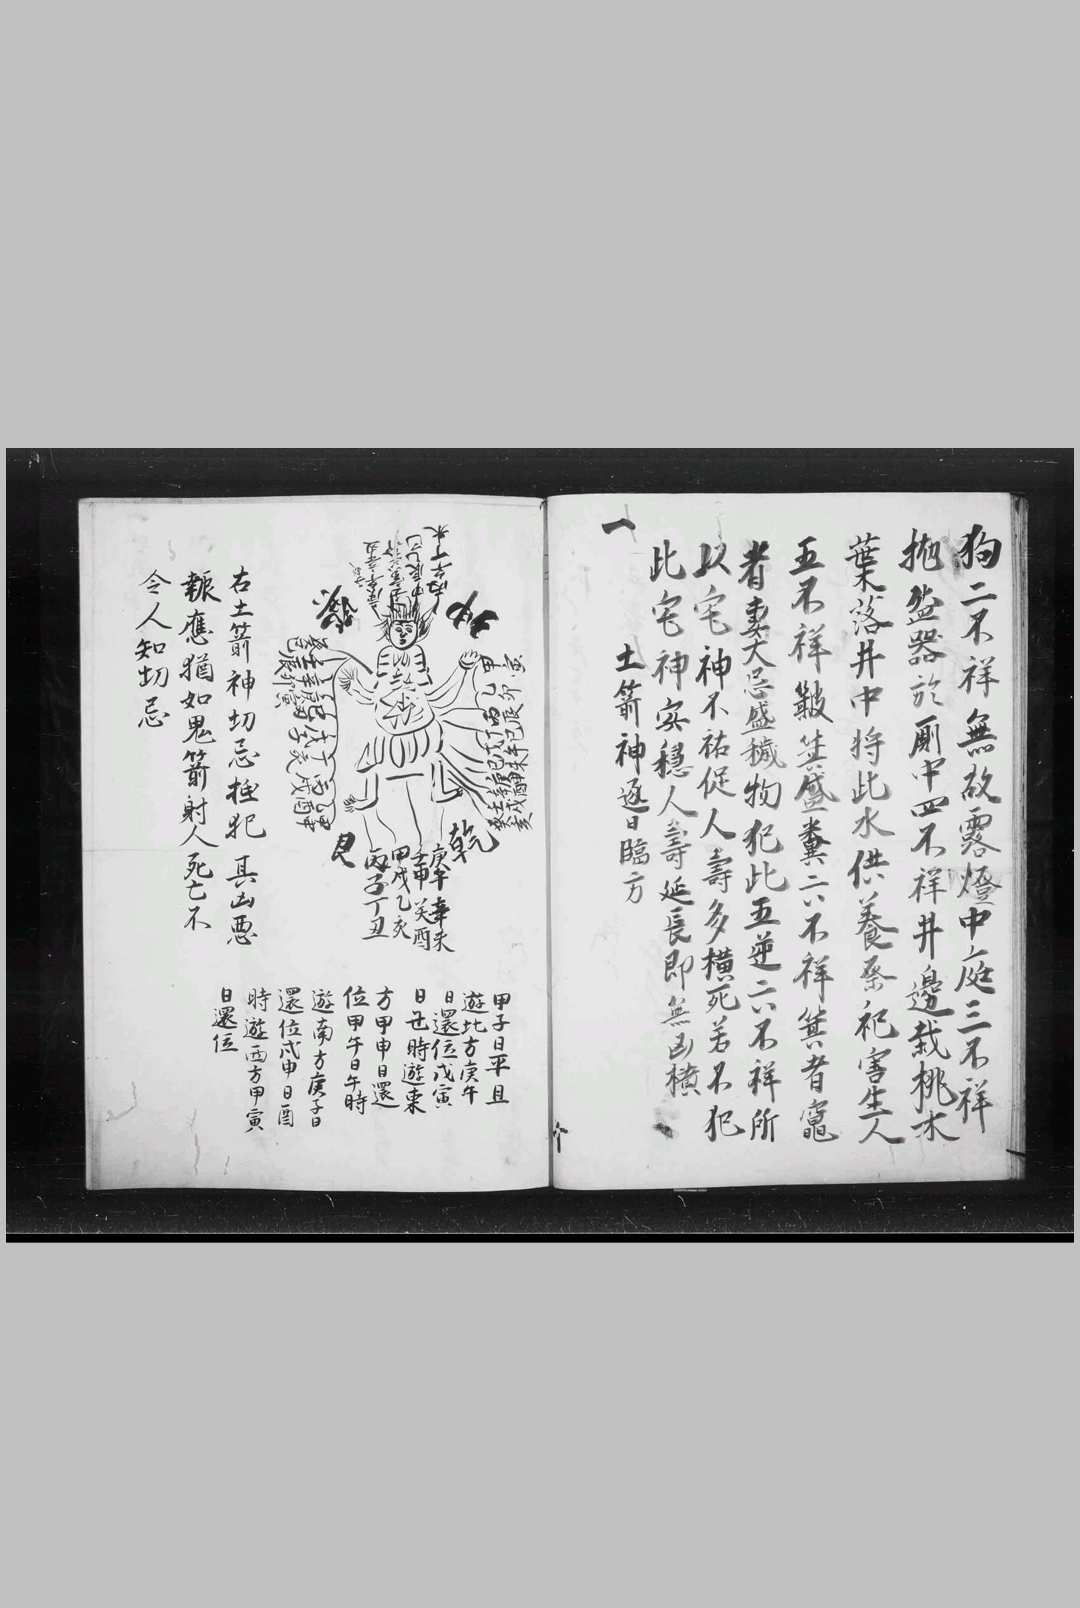 狗二不祥無故露燈中庭三不祥
抛盆器於厠中四不祥井邊栽桃木
葉落井中將此水供養祭祀害生人
五不祥簸箕盛糞六不祥箕者竈
者妻大忌盛穢物犯此五逆六不祥所
以宅神不祐促人壽多橫死若不犯
此宅神安穩人壽延長即無凶橫
一
土箭神逐日臨方
乾
庚午辛未
壬申癸酉
甲戌乙亥
丙子丁丑
艮
甲子日平旦
遊北方庚午
日還位戊寅
日丑時遊東
方甲申日還
位甲午日午時
遊南方庚子日
還位戊申日酉
時遊西方甲寅
日還位
右土箭神切忌抵犯其凶惡
報應猶如鬼箭射人死亡不
令人知切忌